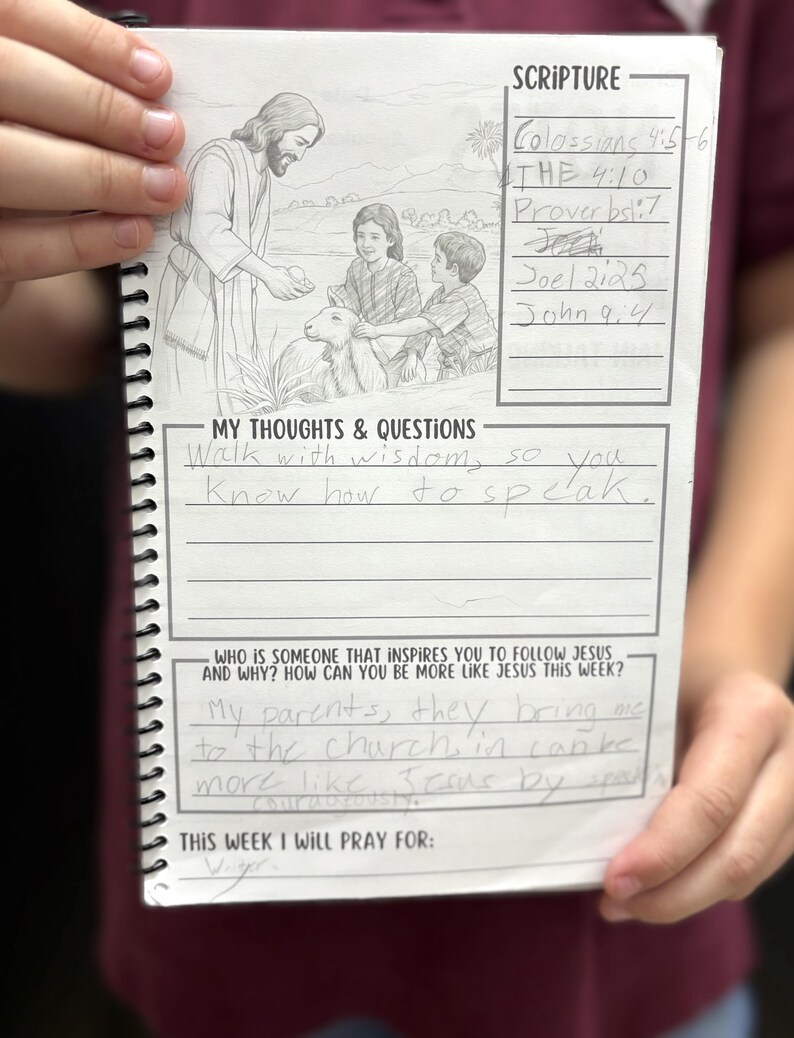 SCRIPTURE
Colossians 4:5-6
1THE 4:10
Proverbs1:7
Joel 2:25
John 9:4
MY THOUGHTS & QUESTIONS
Walk with wisdom, so you
know how to speak.
WHO IS SOMEONE THAT INSPIRES YOU TO FOLLOW JESUS
AND WHY? HOW CAN YOU BE MORE LIKE JESUS THIS WEEK?
My parents, they bring me
to the church, in can be
more like Jesus by
courageously.
THIS WEEK I WILL PRAY FOR: